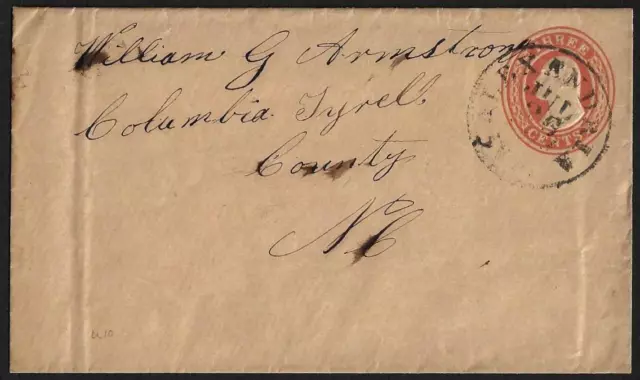 William G Armstrong
Columbia Tyrell
County
NC
THREE
CENTS
ALEXANDRIA
JUL
U10